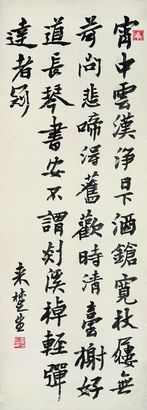 宵中雲漢淨日下酒鎗寬杖屨無
苛問悲啼得舊歡時清臺榭好
道長琴書安不謂剡溪棹輕彈
達者冠
来楚生